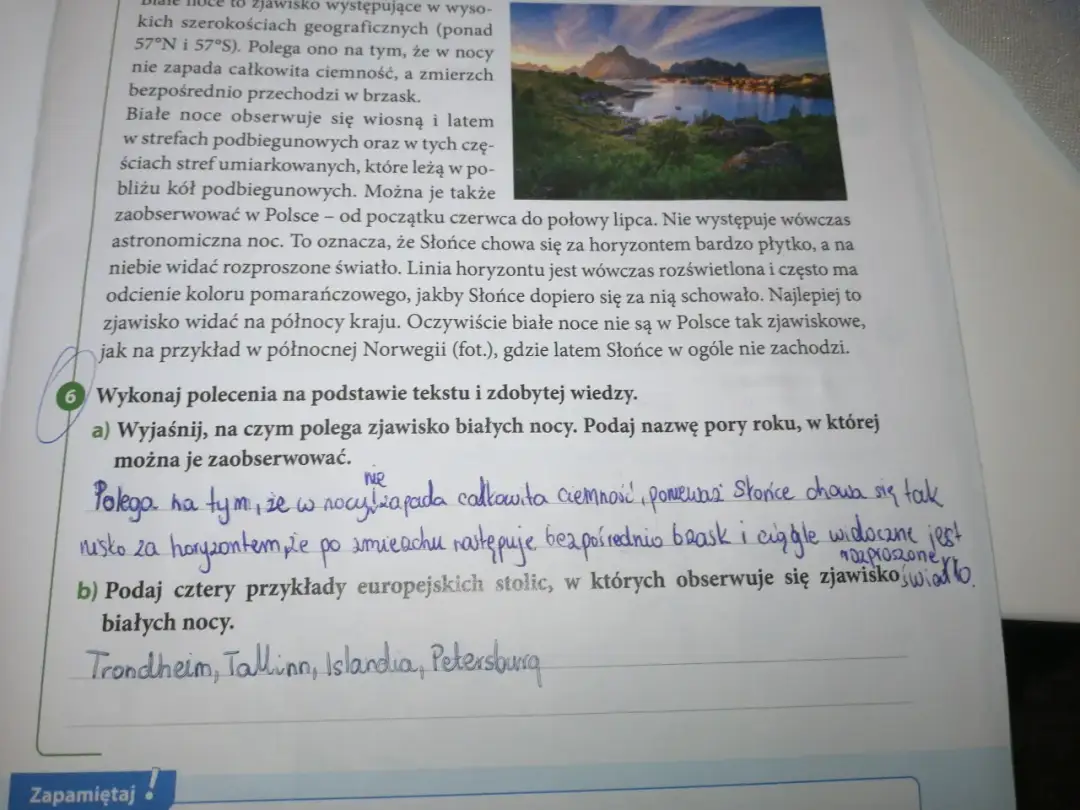 Białe noce to zjawisko występujące w wyso-
kich szerokościach geograficznych (ponad
57°N i 57°S). Polega ono na tym, że w nocy
nie zapada całkowita ciemność, a zmierzch
bezpośrednio przechodzi w brzask.
Białe noce obserwuje się wiosną i latem
w strefach podbiegunowych oraz w tych czę-
ściach stref umiarkowanych, które leżą w po-
bliżu kół podbiegunowych. Można je także
zaobserwować w Polsce – od początku czerwca do połowy lipca. Nie występuje wówczas
astronomiczna noc. To oznacza, że Słońce chowa się za horyzontem bardzo płytko, a na
niebie widać rozproszone światło. Linia horyzontu jest wówczas rozświetlona i często ma
odcienie koloru pomarańczowego, jakby Słońce dopiero się za nią schowało. Najlepiej to
zjawisko widać na północy kraju. Oczywiście białe noce nie są w Polsce tak zjawiskowe,
jak na przykład w północnej Norwegii (fot.), gdzie latem Słońce w ogóle nie zachodzi.
6 Wykonaj polecenia na podstawie tekstu i zdobytej wiedzy.
a) Wyjaśnij, na czym polega zjawisko białych nocy. Podaj nazwę pory roku, w której
można je zaobserwować.
nie
Polega na tym, że w nocy zapada całkowita ciemność, ponieważ Słońce chowa się tak
nisko za horyzontem, że po zmierzchu następuje bezpośrednio brzask i ciągle widoczne jest
rozproszone
światło.
b) Podaj cztery przykłady europejskich stolic, w których obserwuje się zjawisko
białych nocy.
Trondheim, Tallinn, Islandia, Petersburg
Zapamiętaj !